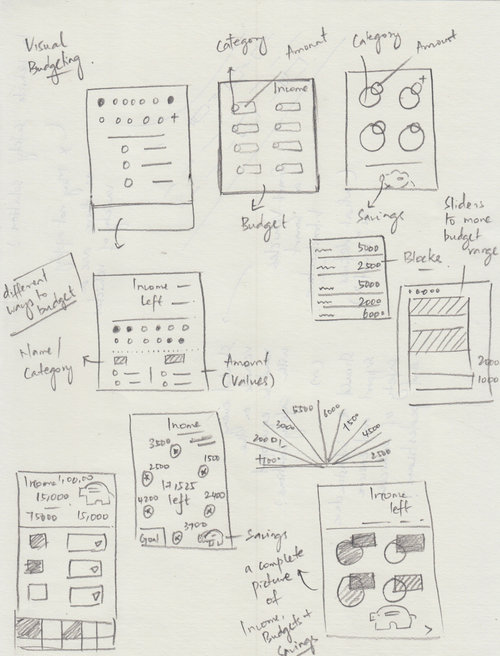 Visual
Budgeting
Category
Amount
Category
Amount
Income
Budget
Savings
Sliders
to more
budget
range
5000
2500
5000
2000
6000
Blocks
different
ways to
budget
Income
left
Name/
Category
Amount
(Values)
2000
1000
Income
3500
2500
1500
4200
left
2400
3900
Goal
Savings
2000
3000
5500
6000
1500
4500
2500
Income
15,000
75000
15,000
Income
left
a complete
picture
of
Income,
Budgets +
Savings